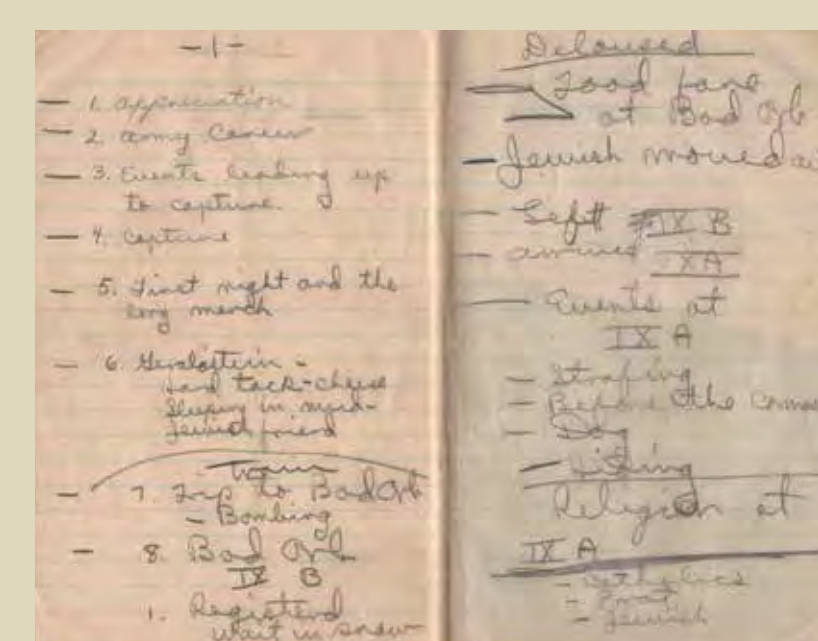 -1-
1. appreciation
2. army Career
3. Events leading up
to capture.
4. Capture
5. First night and the
long march
6. Gerolstein -
hard tack-cheese
Sleeping in mud-
Jewish friend
Train
7. Trip to Bad Orb
- Bombing
8. Bad Orb
IX B
1. Registered
Wait in snow
Deloused
Food fare
at Bad Orb
Jewish moved
Left IX B
arrived IX A
Events at
IX A
- Strafing
- Before the
- Day
Religion at
IX A
- Prot
- Jewish